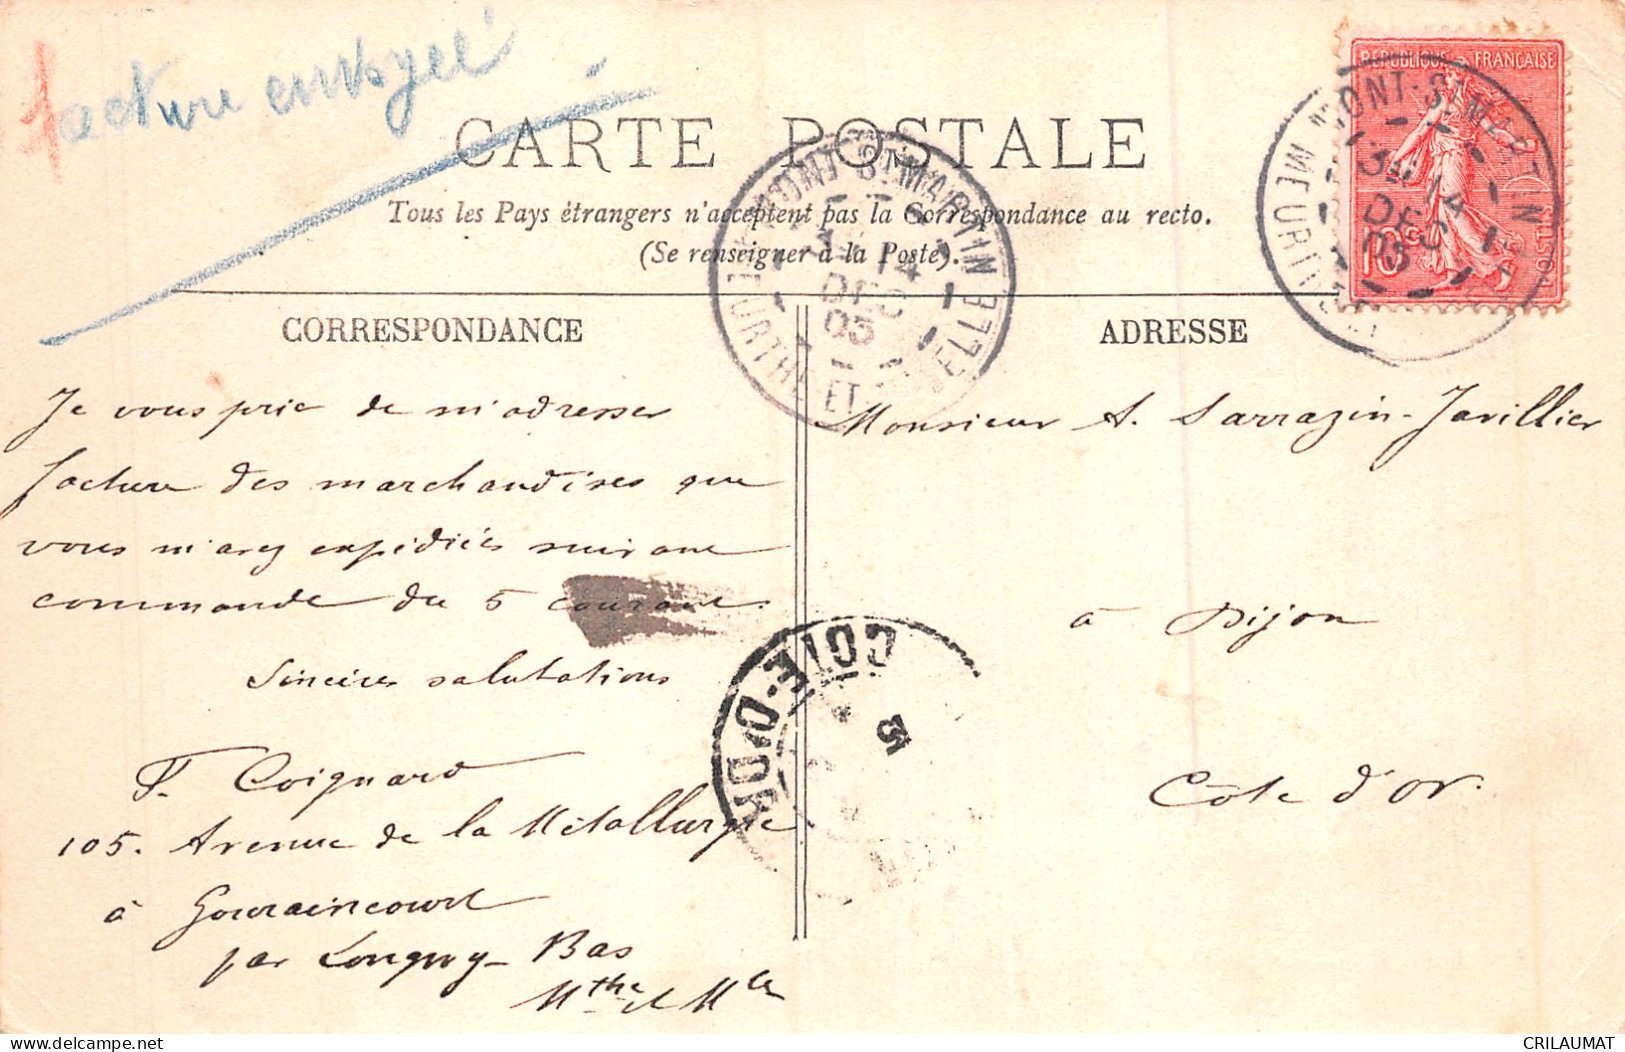 facture envoyée
CARTE POSTALE
Tous les Pays étrangers n'acceptent pas la Correspondance au recto.
(Se renseigner à la Poste).
REPUBLIQUE FRANÇAISE
10c
POSTES
MONT-ST-MARTIN
14
DEC
05
MONT-ST-MARTIN
MEURTHE ET MOSELLE
14
DEC
05
CORRESPONDANCE
Je vous prie de m'adresser
facture des marchandises que
vous m'avez expédiées suivant
commande du 5 courant.
Sincères salutations
F. Coignard
105. Avenue de la Métallurgie
à Gouraincourt
par Longwy-Bas
Mthe et Mlle
ADRESSE
Monsieur A. Sarrazin-Javillier
à Dijon
Côte d'Or.
COTE-D'OR
delcampe.net
CRILAUMAT